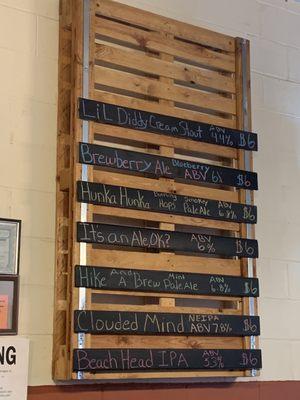 Lil Diddy Cream Stout ABV 4.4% $6
Brewberry Ale Blueberry ABV 6% $6
Hunka Hunka Burning Hops Smokey Pale Ale ABV 6.8% $6
It's an Ale, Ok? ABV 6% $6
Hike And A Brew Mint Pale Ale ABV 6.8% $6
Clouded Mind NEIPA ABV 7.8% $6
Beach Head IPA ABV 5.3% $6
NG